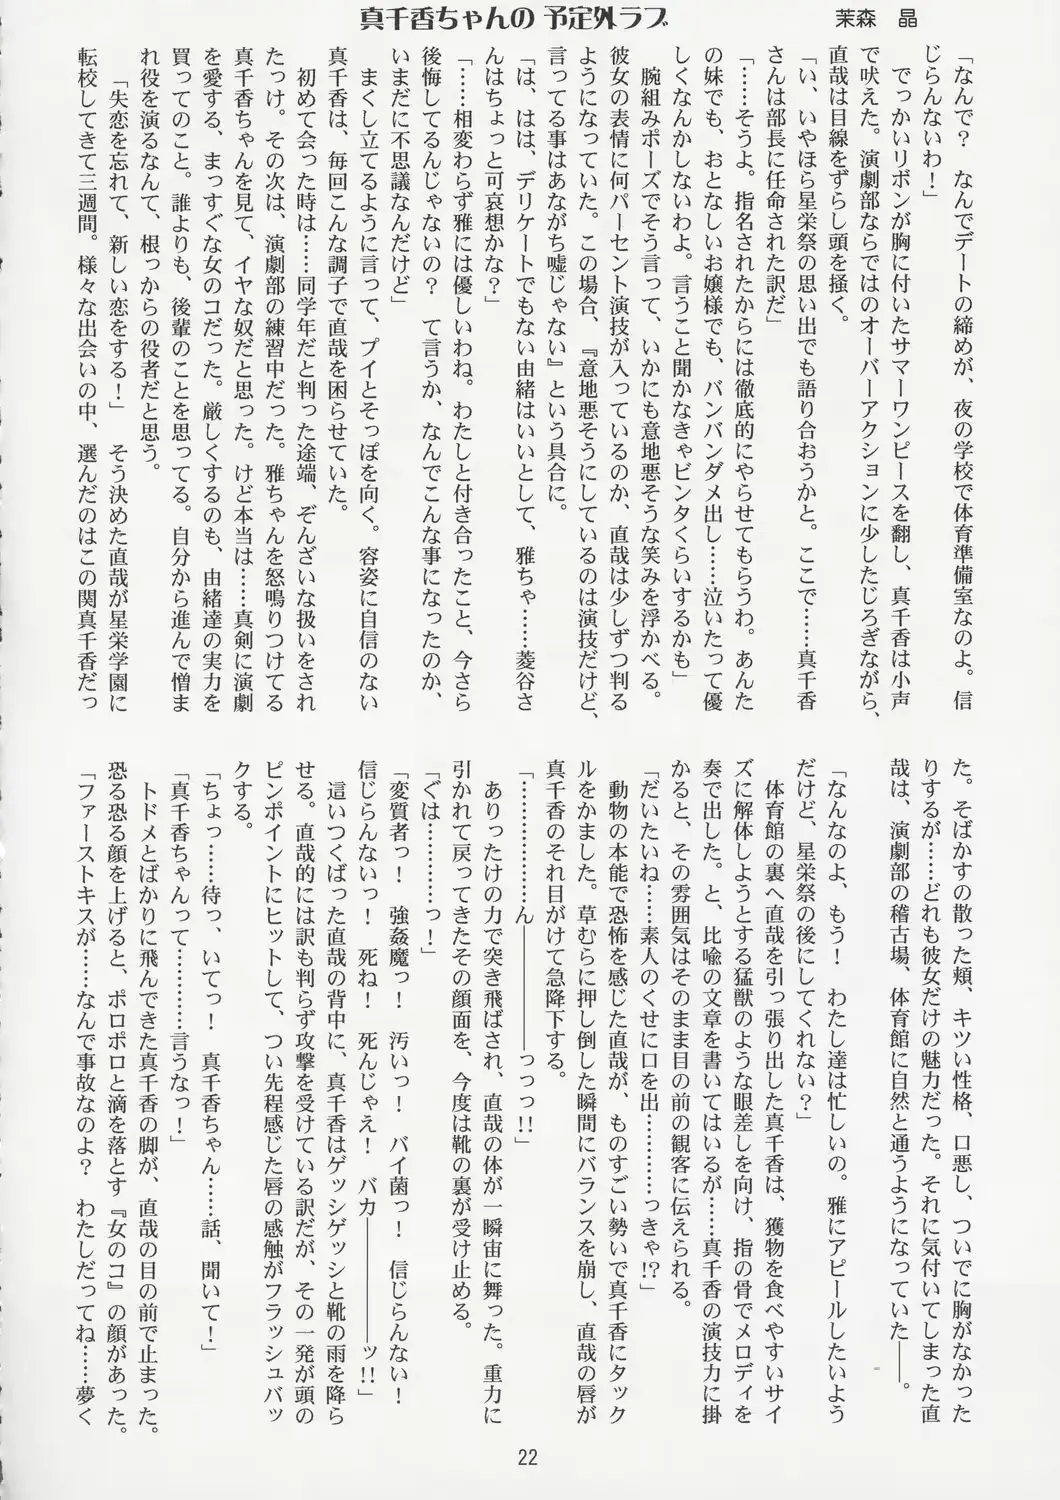 真千香ちゃんの 予定外ラブ
茉森　晶
「なんで？　なんでデートの締めが、夜の学校で体育準備室なのよ。信
じらんないわ！」
　でっかいリボンが胸に付いたサマーワンピースを翻し、真千香は小声
で吠えた。演劇部ならではのオーバーアクションに少したじろぎながら、
直哉は目線をずらし頭を掻く。
「い、いやほら星栄祭の思い出でも語り合おうかと。ここで……真千香
さんは部長に任命された訳だ」
「……そうよ。指名されたからには徹底的にやらせてもらうわ。あんた
の妹でも、おとなしいお嬢様でも、バンバンダメ出し……泣いたって優
しくなんかしないわよ。言うこと聞かなきゃビンタくらいするかも」
　腕組みポーズでそう言って、いかにも意地悪そうな笑みを浮かべる。
彼女の表情に何パーセント演技が入っているのか、直哉は少しずつ判る
ようになっていた。この場合、『意地悪そうにしているのは演技だけど、
言ってる事はあながち嘘じゃない』という具合に。
「は、はは、デリケートでもない由緒はいいとして、雅ちゃ……菱谷さ
んはちょっと可哀想かな？」
「……相変わらず雅には優しいわね。わたしと付き合ったこと、今さら
後悔してるんじゃないの？　て言うか、なんでこんな事になったのか、
いまだに不思議なんだけど」
　まくし立てるように言って、プイとそっぽを向く。容姿に自信のない
真千香は、毎回こんな調子で直哉を困らせていた。
　初めて会った時は……同学年だと判った途端、ぞんざいな扱いをされ
たっけ。その次は、演劇部の練習中だった。雅ちゃんを怒鳴りつけてる
真千香ちゃんを見て、イヤな奴だと思った。けど本当は……真剣に演劇
を愛する、まっすぐな女のコだった。厳しくするのも、由緒達の実力を
買ってのこと。誰よりも、後輩のことを思ってる。自分から進んで憎ま
れ役を演るなんて、根っからの役者だと思う。
「失恋を忘れて、新しい恋をする！」　そう決めた直哉が星栄学園に
転校してきて三週間。様々な出会いの中、選んだのはこの関真千香だっ
た。そばかすの散った頬、キツい性格、口悪し、ついでに胸がなかった
りするが……どれも彼女だけの魅力だった。それに気付いてしまった直
哉は、演劇部の稽古場、体育館に自然と通うようになっていた――。
「なんなのよ、もう！　わたし達は忙しいの。雅にアピールしたいよう
だけど、星栄祭の後にしてくれない？」
　体育館の裏へ直哉を引っ張り出した真千香は、獲物を食べやすいサイ
ズに解体しようとする猛獣のような眼差しを向け、指の骨でメロディを
奏で出した。と、比喩の文章を書いてはいるが……真千香の演技力に掛
かると、その雰囲気はそのまま目の前の観客に伝えられる。
「だいたいね……素人のくせに口を出…………っきゃ!?」
　動物の本能で恐怖を感じた直哉が、ものすごい勢いで真千香にタック
ルをかました。草むらに押し倒した瞬間にバランスを崩し、直哉の唇が
真千香のそれ目がけて急降下する。
「……………ん――――――っっっ!!」
　ありったけの力で突き飛ばされ、直哉の体が一瞬宙に舞った。重力に
引かれて戻ってきたその顔面を、今度は靴の裏が受け止める。
「ぐは…………っ！」
「変質者っ！　強姦魔っ！　汚いっ！　バイ菌っ！　信じらんない！
信じらんないっ！　死ね！　死んじゃえ！　バカ――――――ッ!!」
　這いつくばった直哉の背中に、真千香はゲッシゲッシと靴の雨を降ら
せる。直哉的には訳も判らず攻撃を受けている訳だが、その一発が頭の
ピンポイントにヒットして、つい先程感じた唇の感触がフラッシュバッ
クする。
「ちょっ……待っ、いてっ！　真千香ちゃん……話、聞いて！」
「真千香ちゃんって…………言うなっ！」
　トドメとばかりに飛んできた真千香の脚が、直哉の目の前で止まった。
恐る恐る顔を上げると、ポロポロと滴を落とす『女のコ』の顔があった。
「ファーストキスが……なんで事故なのよ？　わたしだってね……夢く
22